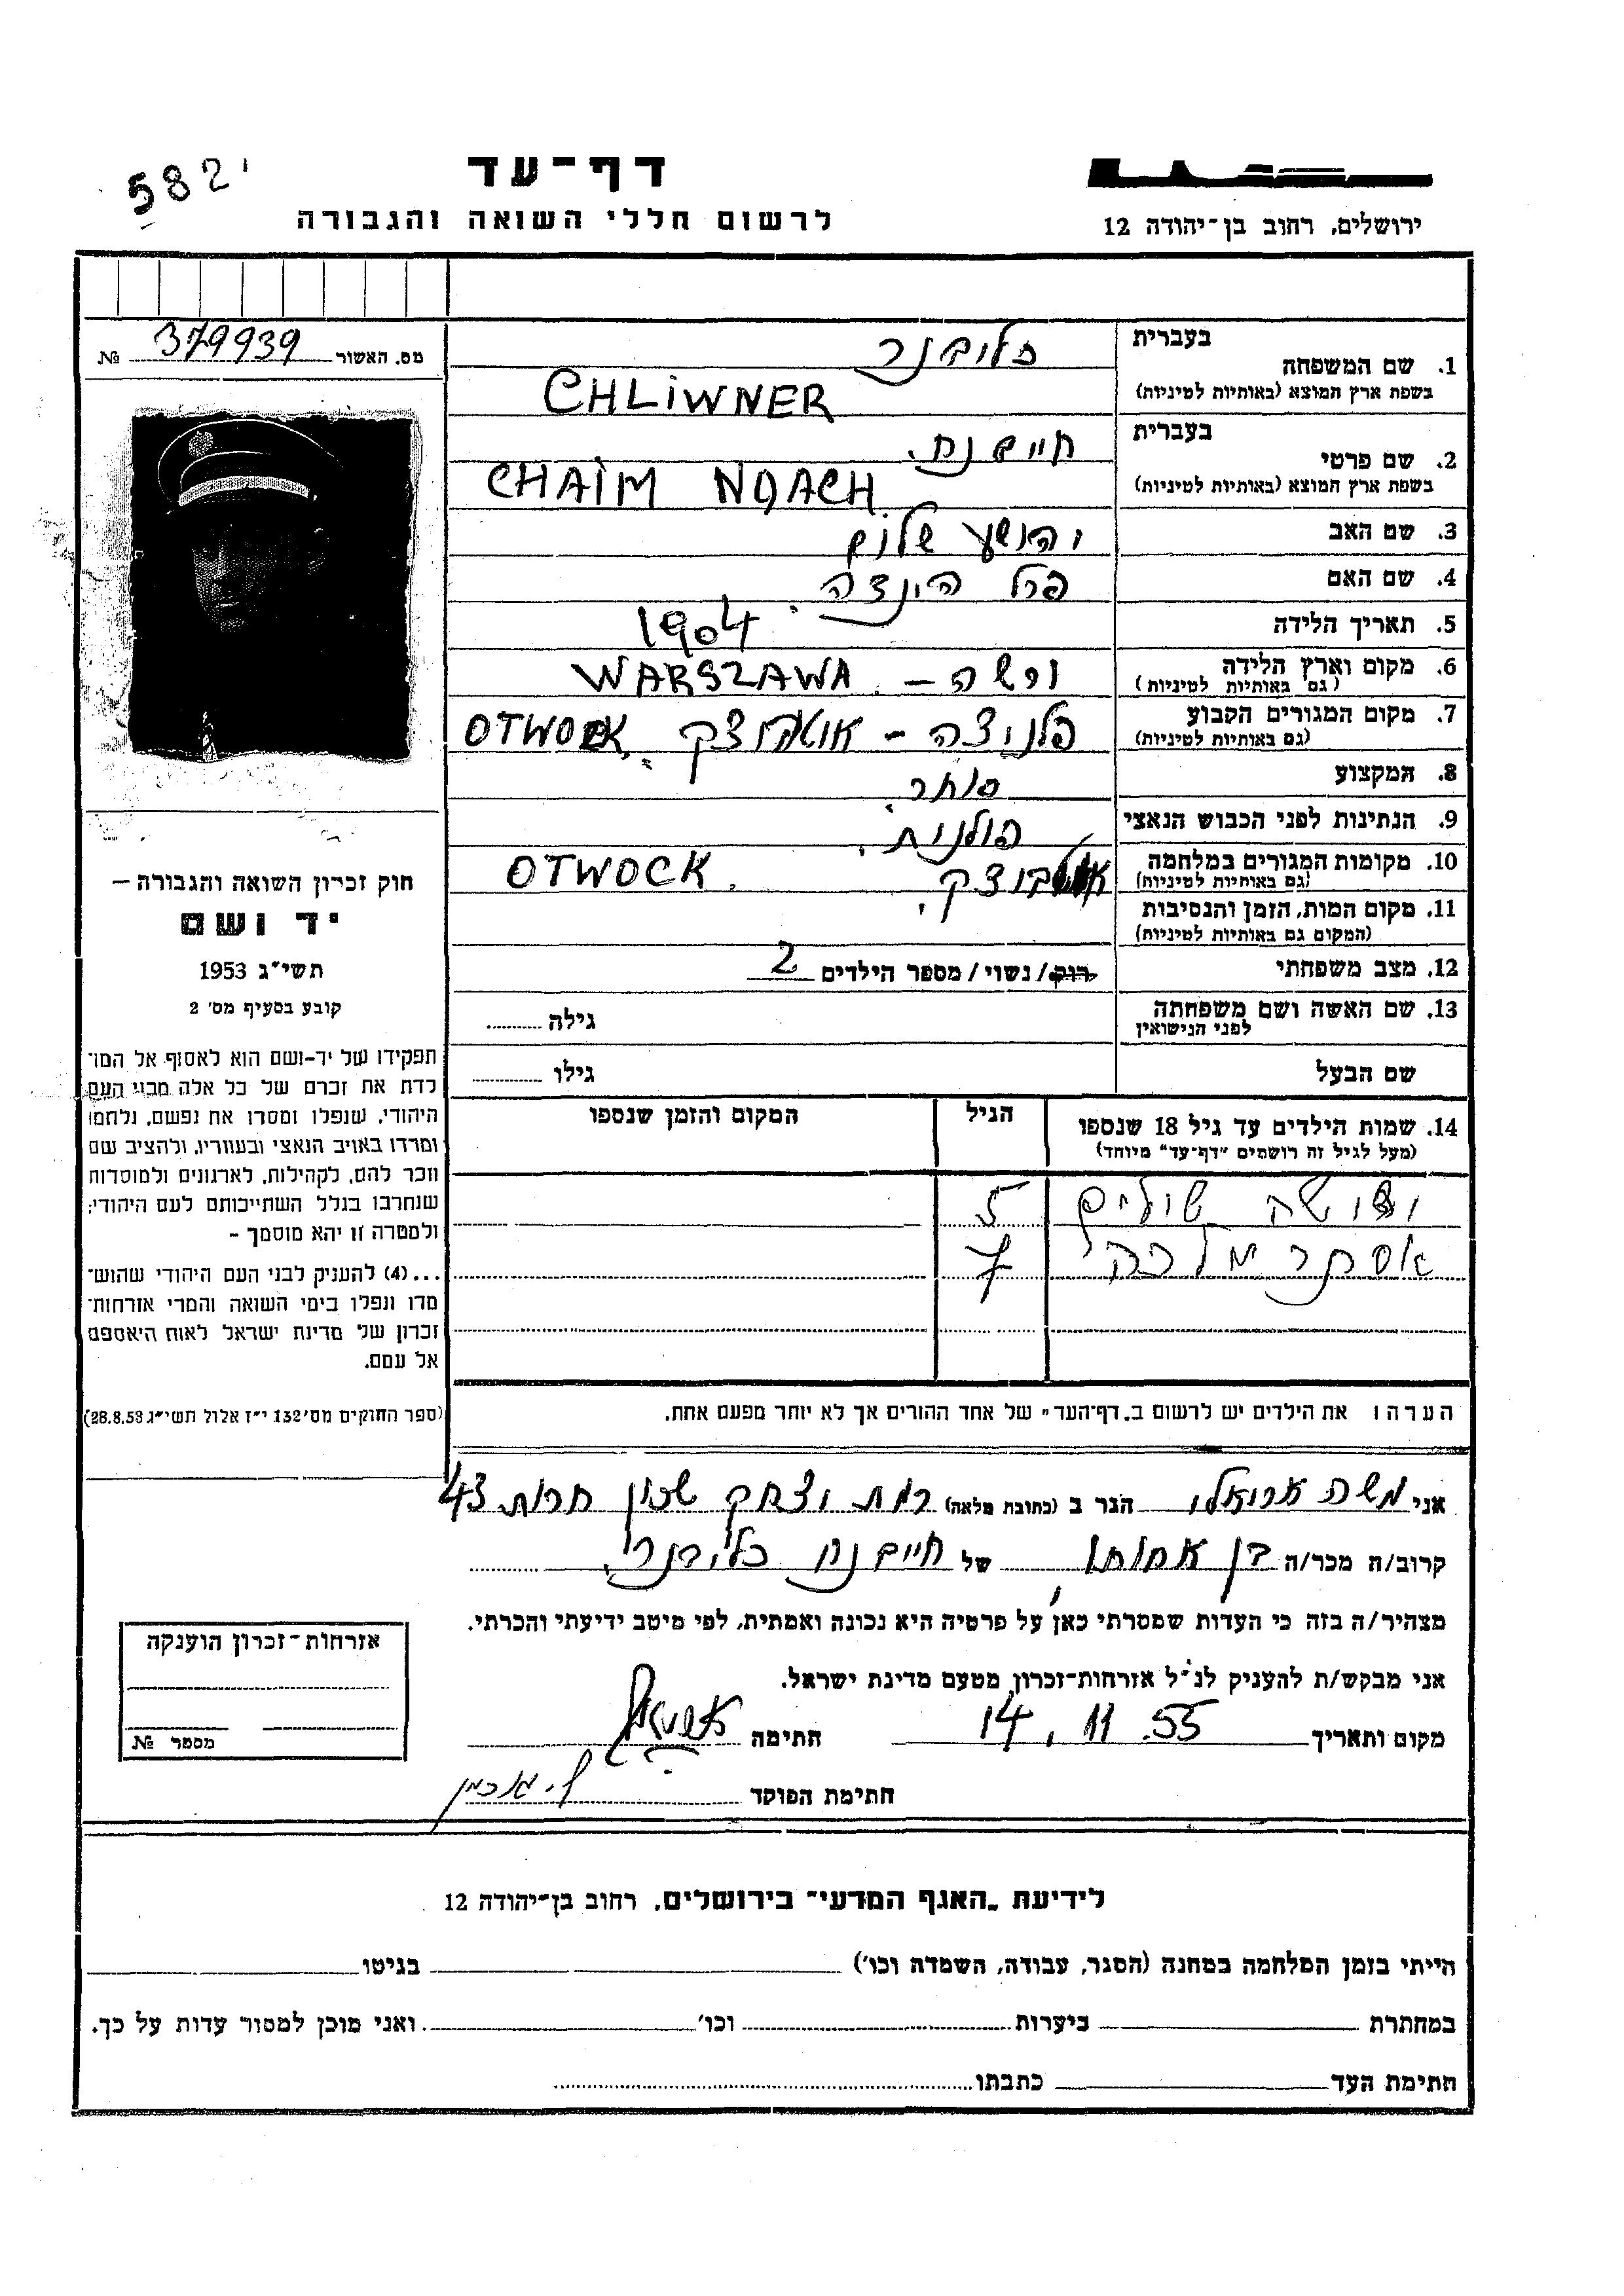 5821
דף-עד
לרשום חללי השואה והגבורה
ירושלים, רחוב בן-יהודה 12
מס. האשור 379939 №
1. שם המשפחה
בעברית כליבנר
בשפת ארץ המוצא (באותיות לטיניות) CHLIWNER
2. שם פרטי
בעברית חיים נח.
בשפת ארץ המוצא (באותיות לטיניות) CHAIM NOACH
3. שם האב יהושע שלום
4. שם האם פרל הינדה
5. תאריך הלידה 1904
6. מקום וארץ הלידה ורשה - WARSZAWA
(גם באותיות לטיניות)
7. מקום המגורים הקבוע OTWOCK
(גם באותיות לטיניות)
8. המקצוע סוחר.
9. הנתינות לפני הכבוש הנאצי פולנית.
10. מקומות המגורים במלחמה OTWOCK.
(גם באותיות לטיניות)
11. מקום המות, הזמן והנסיבות
(המקום גם באותיות לטיניות)
12. מצב משפחתי רווק/נשוי/מספר הילדים 2
13. שם האשה ושם משפחתה גילה
לפני הנישואין
שם הבעל גילו
14. שמות הילדים עד גיל 18 שנספו הגיל המקום והזמן שנספו
(מעל לגיל זה רושמים "דף-עד" מיוחד)
5
אסתר מלכה 7
הערה: את הילדים יש לרשום ב„דף-העד" של אחד ההורים אך לא יותר מפעם אחת.
חוק זכרון השואה והגבורה –
יד ושם
תשי"ג 1953
קובע בסעיף מס' 2
תפקידו של יד-ושם הוא לאסוף אל המו-
לדת את זכרם של כל אלה מבני העם
היהודי, שנפלו ומסרו את נפשם, נלחמו
ומרדו באויב הנאצי ובעוזריו, ולהציב שם
וזכר להם, לקהילות, לארגונים ולמוסדות
שנחרבו בגלל השתייכותם לעם היהודי;
ולמטרה זו יהא מוסמך –
...(4) להעניק לבני העם היהודי שהוש-
מדו ונפלו בימי השואה והמרי אזרחות-
זכרון של מדינת ישראל לאות היאספם
אל עמם.
(ספר החוקים מס' 132 י"ז אלול תשי"ג 28.8.53)
אני משה אריאלי הגר ב (כתובת מלאה) רמת יצחק שכון חרות 43
קרוב/ה מכר/ה בן אחותו של חיים נח כליבנר.
מצהיר/ה בזה כי העדות שמסרתי כאן על פרטיה היא נכונה ואמתית, לפי מיטב ידיעתי והכרתי.
אני מבקש/ת להעניק לנ"ל אזרחות-זכרון מטעם מדינת ישראל.
מקום ותאריך 14.11.55 חתימה
חתימת הפוקד
אזרחות-זכרון הוענקה
מספר №
לידיעת „האגף המדעי" בירושלים, רחוב בן-יהודה 12
הייתי בזמן המלחמה במחנה (הסגר, עבודה, השמדה וכו') בגיטו
במחתרת ביערות וכו' ואני מוכן למסור עדות על כך.
חתימת העד כתבתו